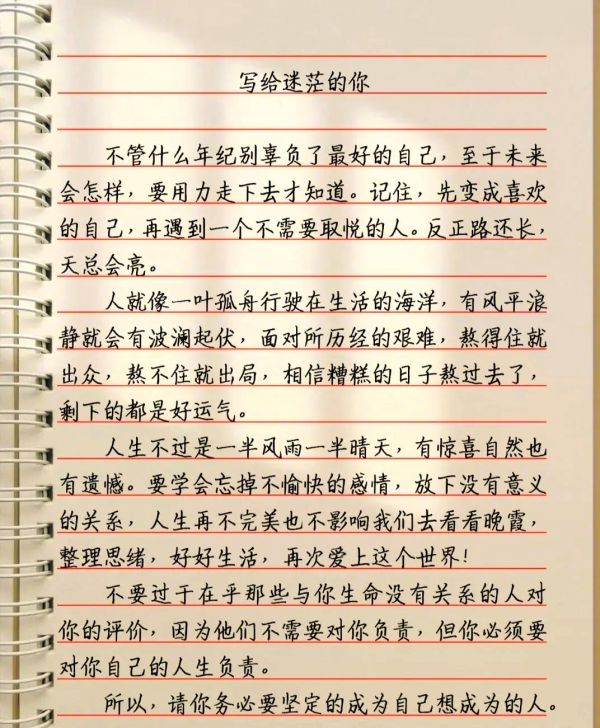 写给迷茫的你
不管什么年纪别辜负了最好的自己，至于未来
会怎样，要用力走下去才知道。记住，先变成喜欢
的自己，再遇到一个不需要取悦的人。反正路还长，
天总会亮。
人就像一叶孤舟行驶在生活的海洋，有风平浪
静就会有波澜起伏，面对所历经的艰难，熬得住就
出众，熬不住就出局，相信糟糕的日子熬过去了，
剩下的都是好运气。
人生不过是一半风雨一半晴天，有惊喜自然也
有遗憾。要学会忘掉不愉快的感情，放下没有意义
的关系，人生再不完美也不影响我们去看看晚霞，
整理思绪，好好生活，再次爱上这个世界！
不要过于在乎那些与你生命没有关系的人对
你的评价，因为他们不需要对你负责，但你必须要
对你自己的人生负责。
所以，请你务必要坚定的成为自己想成为的人。